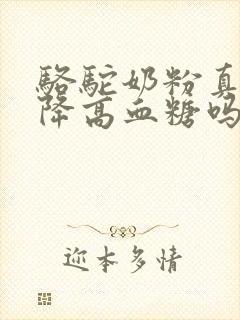 骆驼奶粉真
降高血糖吗
迩本多情